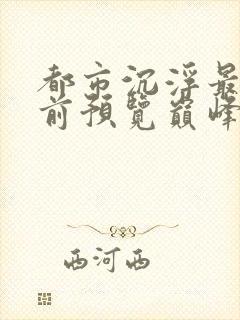 都市沉浮最
前预览巅峰
西河西